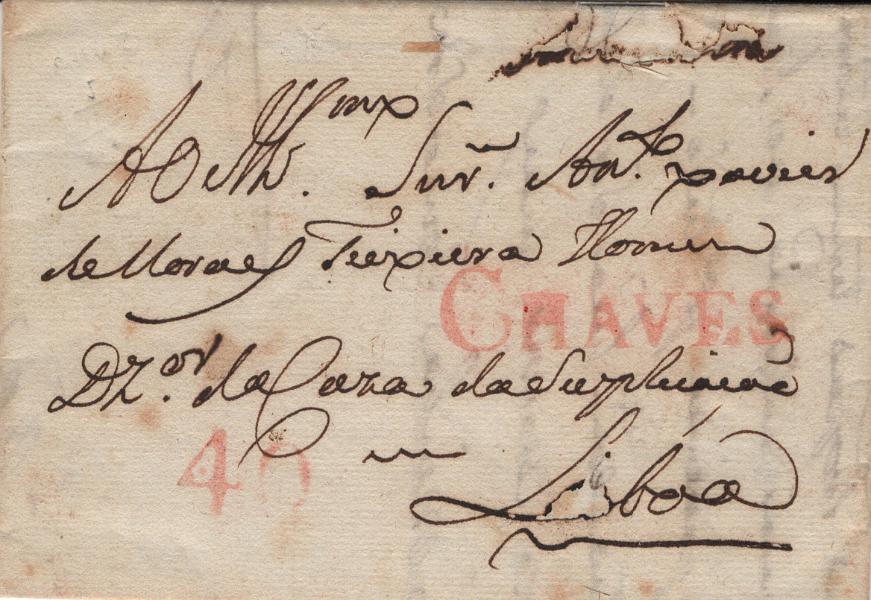 AO Illmo. Snr. Anto. xavier
de Moraes Teixiera Homem
CHAVES
Dzor. da Caza da Suplicacaõ
40
em
Lisbóa